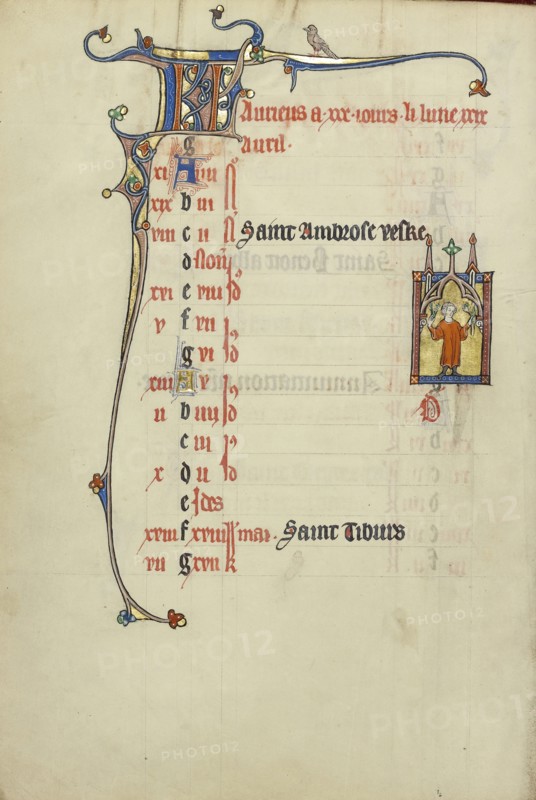 KL Auriens a · xxx · iours · li lune xxix
auril ·
g
xi A iiii N
xix b iii N
viii c ii N Saint Ambrose veske
d Non
xvi e viii id
v f vii id
g vi id
xiii A v id
ii b iiii id
c iii id
x d ii id
e ides
xviii f xviii kl mai · Saint Tiburs
vii g xvii k
D
PHOTO12